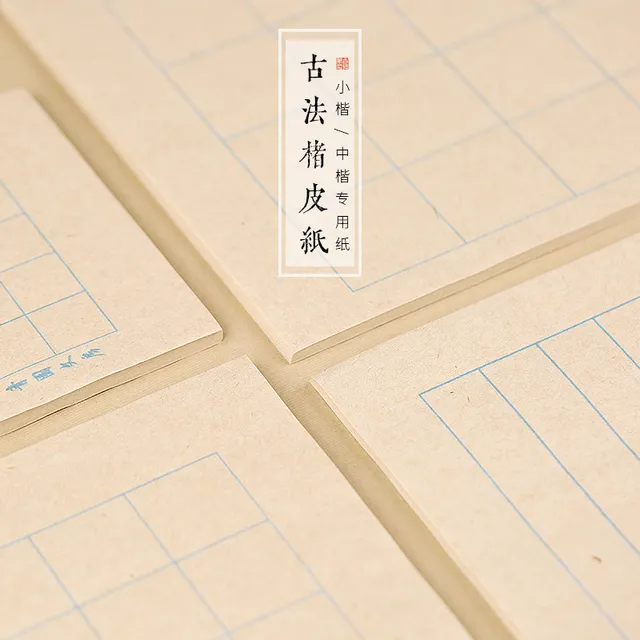 古法楮皮紙
小楷/中楷专用纸